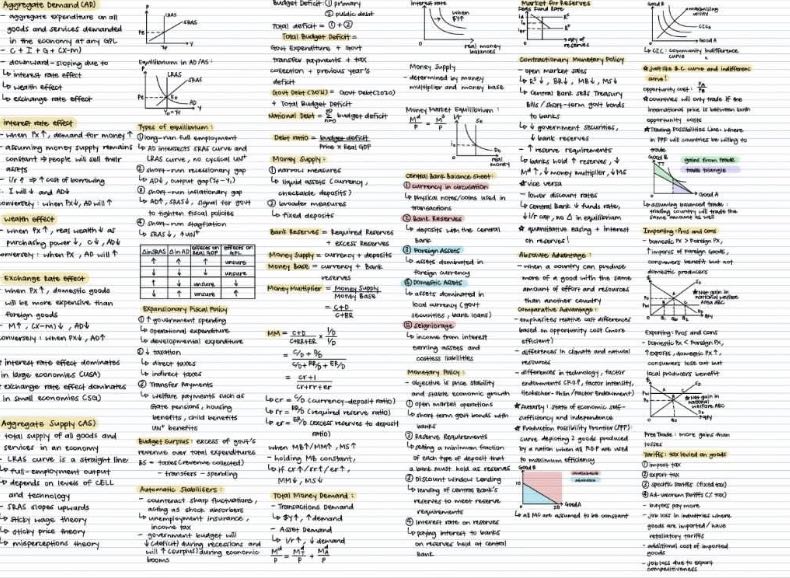 Aggregate Demand (AD)
- aggregate expenditure on all
goods and services demanded
in the economy at any GPL
- C + I + G + (X-M)
- downward-sloping due to
↳ interest rate effect
↳ wealth effect
↳ exchange rate effect
Interest rate effect
- when Px↑, demand for money↑
- assuming money supply remains
constant → people will sell their
assets
- i/r↑ → ↑ cost of borrowing
: I will ↓ and AD↓
conversely: when Px↓, AD will ↑
Wealth effect
- when Px↑, real wealth↓ as
purchasing power↓, C↓, AD↓
conversely: when Px↓, AD ↑
Exchange Rate effect
- when Px↑, domestic goods
will be more expensive
than foreign goods
- M↑, (X-M)↓, AD↓
conversely: when Px↓, AD↑
interest rate effect dominates
in large economies (USA)
exchange rate effect dominates
in small economies (SG)
Aggregate Supply (AS)
- total supply of all goods and
services in an economy
- LRAS curve is a straight line
↳ full-employment output
↳ depends on levels of CELL
and technology
- SRAS slopes upwards
↳ sticky wage theory
↳ sticky price theory
↳ misperceptions theory
LRAS
SRAS
Equilibrium in AD/AS:
LRAS
SRAS
AD
Types of equilibrium:
① long-run full employment
↳ AD intersects SRAS curve and
LRAS curve, no cyclical un°
② short-run recessionary gap
③ short-run inflationary gap
↳ AD↑, SRAS↓, signal for govt
to tighten fiscal policies
④ short-run stagflation
↳ SRAS↓, ↑un°
Δ in SRAS Δ in AD effects on Real GDP effects on GPL
↑ ↑ ↑ unsure
↓ ↓ ↓ unsure
↑ ↓ unsure ↓
↓ ↑ unsure ↑
Expansionary Fiscal Policy
① ↑ government spending
↳ operational expenditure
↳ developmental expenditure
② ↓ taxation
↳ direct taxes
↳ indirect taxes
③ Transfer Payments
↳ welfare payments such as
state pensions, housing
benefits, child benefits
un° benefits
Budget Surplus: excess of govt's
revenue over total expenditures
BS = taxes (revenue collected)
- transfers - spending
Automatic Stabilisers:
- counteract sharp fluctuations,
acting as shock absorbers
↳ unemployment insurance,
income tax
- government budget will
↓ (deficit) during recessions and
will ↑ (surplus) during economic
booms
Budget Deficit: ① primary
② public debt
Total deficit = ① + ②
Total Budget Deficit =
Govt Expenditure + Govt
transfer payments + tax
collection + previous year's
deficit
+ Total Budget Deficit
National Debt = Σ budget deficit
Debt ratio = budget deficit
Price x Real GDP
Money Supply:
① narrow measures
↳ liquid assets (currency,
checkable deposits)
② broader measures
↳ fixed deposits
Bank Reserves = Required Reserves
+ excess Reserves
Money Supply = currency + deposits
Money Base = currency + Bank
reserves
Money Multiplier = Money Supply
Money Base
= C+D
C+BR
MM = C+D
C+RR+ER
x 1/D
1/D
= C/D + D/D
C/D + RR/D + ER/D
= cr+1
cr+rr+er
↳ cr = C/D (currency-deposit ratio)
↳ rr = RR/D (required reserve ratio)
↳ er = ER/D (excess reserves to deposit
ratio)
when MB↑/MM↑, MS↑
- holding MB constant,
↳ if cr↑/rr↑/er↑,
MM↓, MS↓
Total Money Demand:
- Transactions Demand
↳ $Y↑, ↑demand
- Asset Demand
↳ i/r↑, ↓ demand
Interest rate
when
$Y↑
real money
balances
Money Supply
- determined by money
multiplier and money base
Money Market Equilibrium:
real
money
Central Bank Balance Sheet:
① currency in circulation
↳ physical notes/coins used in
transactions
② Bank Reserves
↳ deposits with the central
Bank
③ Foreign Assets
↳ assets dominated in
foreign currency
④ Domestic Assets
↳ assets dominated in
local currency (govt
securities, bank loans)
⑤ Seigniorage
↳ income from interest
earning assets and
costless liabilities
Monetary Policy:
- objective is price stability
and stable economic growth
① open market operations
↳ short term govt bonds with
banks
② Reserve Requirements
↳ setting a minimum fraction
of each type of deposit that
a bank must hold as reserves
③ Discount Window Lending
↳ lending of central bank's
reserves to meet reserve
requirements
④ interest rate on reserves
↳ paying interest to banks
on reserves held at central
Bank
Market for Reserves
Contractionary Monetary Policy
- open market sales
↳ Rˢ↓, BR↓, MB↓, MS↓
↳ Central Bank sells Treasury
Bills/short-term govt bonds
to banks
↳ ↓ government securities,
↓ bank reserves
- ↑ reserve requirements
↳ banks hold ↑ reserves, ↓
★ vice versa
- lower discount rates
↳ Central Bank ↓ funds rate,
↓i/r cap, no Δ in equilibrium
★ quantitative easing + interest
on reserves!
Absolute Advantage:
- when a country can produce
more of a good with the same
amount of effort and resources
than another country
Comparative Advantage:
- emphasises relative cost differences
based on opportunity cost (more
efficient)
- differences in climate and natural
resources
- differences in technology, factor
★ Autarky: state of economic self-
sufficiency and independence
★ Production Possibility Frontier (PPF):
curve depicting 2 goods produced
by a nation when all F.O.P are used
to maximum efficiency
Good B
Good A
Good B
CICs
Good A
↳ CIC: community indifference
curve
opportunity cost:
★ countries will only trade if the
international price is between both
opportunity costs
★ Trading Possibilities Line: where
in PPF will countries be willing to
trade
Good B
gains from trade
trade triangle
Good A
↳ assuming balanced trade:
trading country will trade the
same amount as well
Importing: Pros and Cons
- Domestic Px > Foreign Px,
↑ imports of Foreign goods,
consumers benefit but not
domestic producers
★ Net gain in
national welfare
Exporting: Pros and Cons
- Domestic Px < Foreign Px,
↑ exports, domestic Px↑,
consumers lose out but
local producers benefit
★ Net gain in
national welfare
Free Trade: more gains than
losses
Tariffs: tax levied on goods
① import tax
② export tax
③ specific tariffs (fixed tax)
④ Ad-valorem tariffs (% tax)
- buyers pay more
- job loss in industries where
goods are imported/have
retaliatory tariffs
- additional cost of imported
goods
- job loss due to export
competitiveness